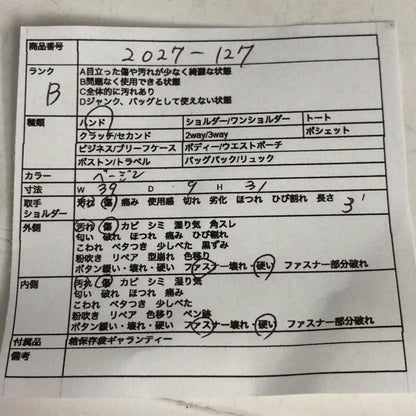 商品番号 2027-127
ランク B A目立った傷や汚れが少なく綺麗な状態
B問題なく使用できる状態
C全体的に汚れあり
Dジャンク、バッグとして使えない状態
種類 ハンド ショルダー/ワンショルダー トート
クラッチ/セカンド 2way/3way ポシェット
ビジネス/ブリーフケース ボディー/ウエストポーチ
ボストン/トラベル バックパック/リュック
カラー ベージュ
寸法 W 39 D 9 H 31
取手 ショルダー 汚れ 傷 痛み 使用感 切れ 劣化 ほつれ ひび割れ 長さ 3
外側 汚れ 傷 カビ シミ 湿り気 角スレ
匂い 破れ ほつれ 痛み ひび割れ
こわれ ベタつき 少しべた 黒ずみ
粉吹き リペア 型崩れ 色移り
ボタン緩い・壊れ・硬い ファスナー壊れ・硬い ファスナー部分破れ
内側 汚れ 傷 カビ シミ 湿り気
匂い 破れ ほつれ 痛み
こわれ ベタつき 少しべた
粉吹き リペア 色移り ペン跡
ボタン緩い・壊れ・硬い ファスナー壊れ・硬い ファスナー部分破れ
付属品 箱保存袋ギャランティー
備考